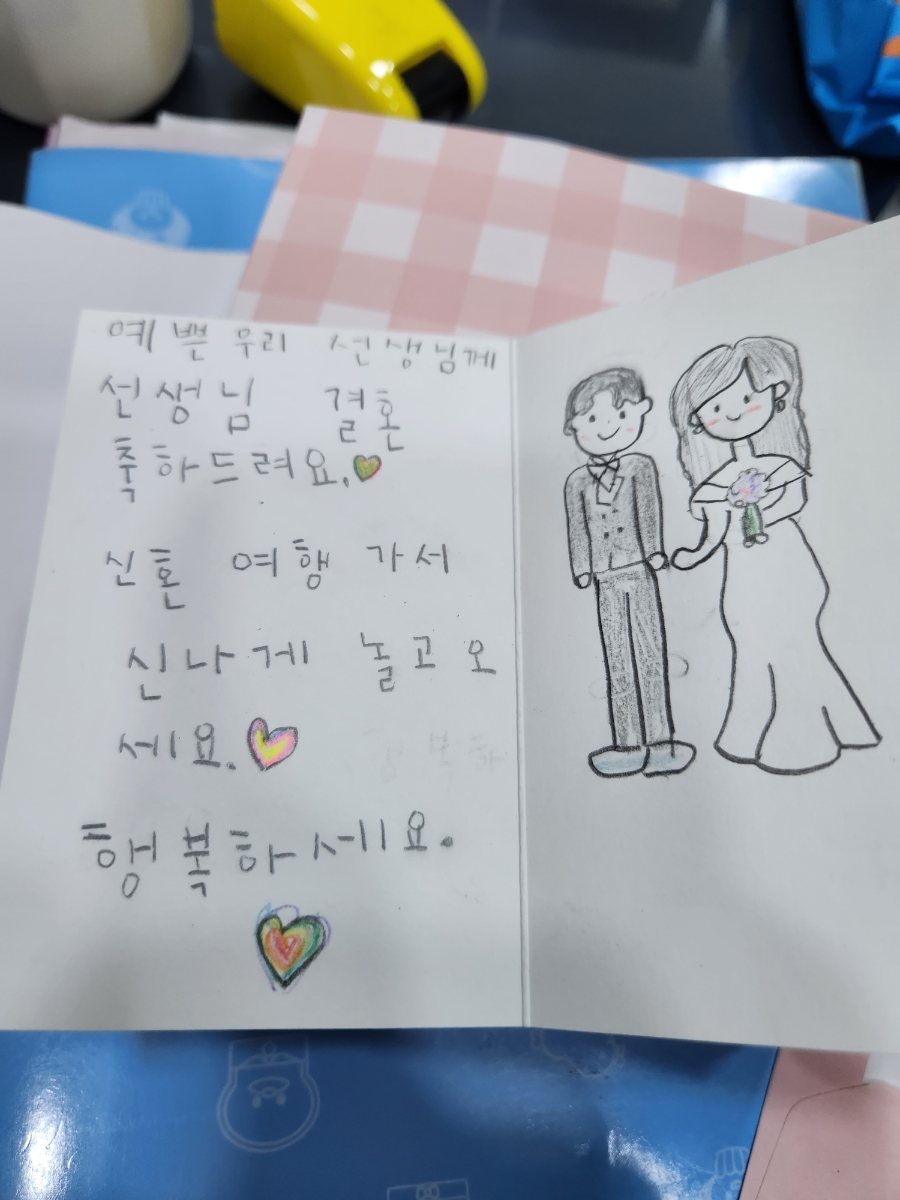 예쁜 우리 선생님께
선생님 결혼
축하드려요.
신혼 여행 가서
신나게 놀고 오
세요.
행복하세요.